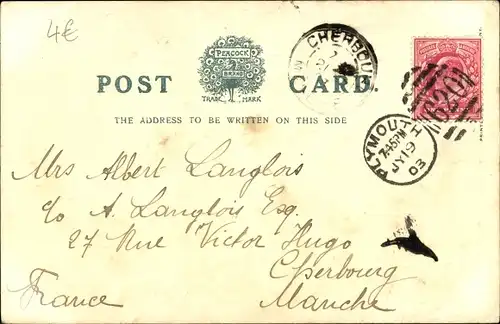 4€
PEACOCK
BRAND
TRADE MARK
POST CARD.
CHERBOURG
620
PLYMOUTH
7.45PM
JY 19
03
THE ADDRESS TO BE WRITTEN ON THIS SIDE
Mrs Albert Langlois
c/o A. Langlois Esq.
27 Rue Victor Hugo
Cherbourg
France Manche